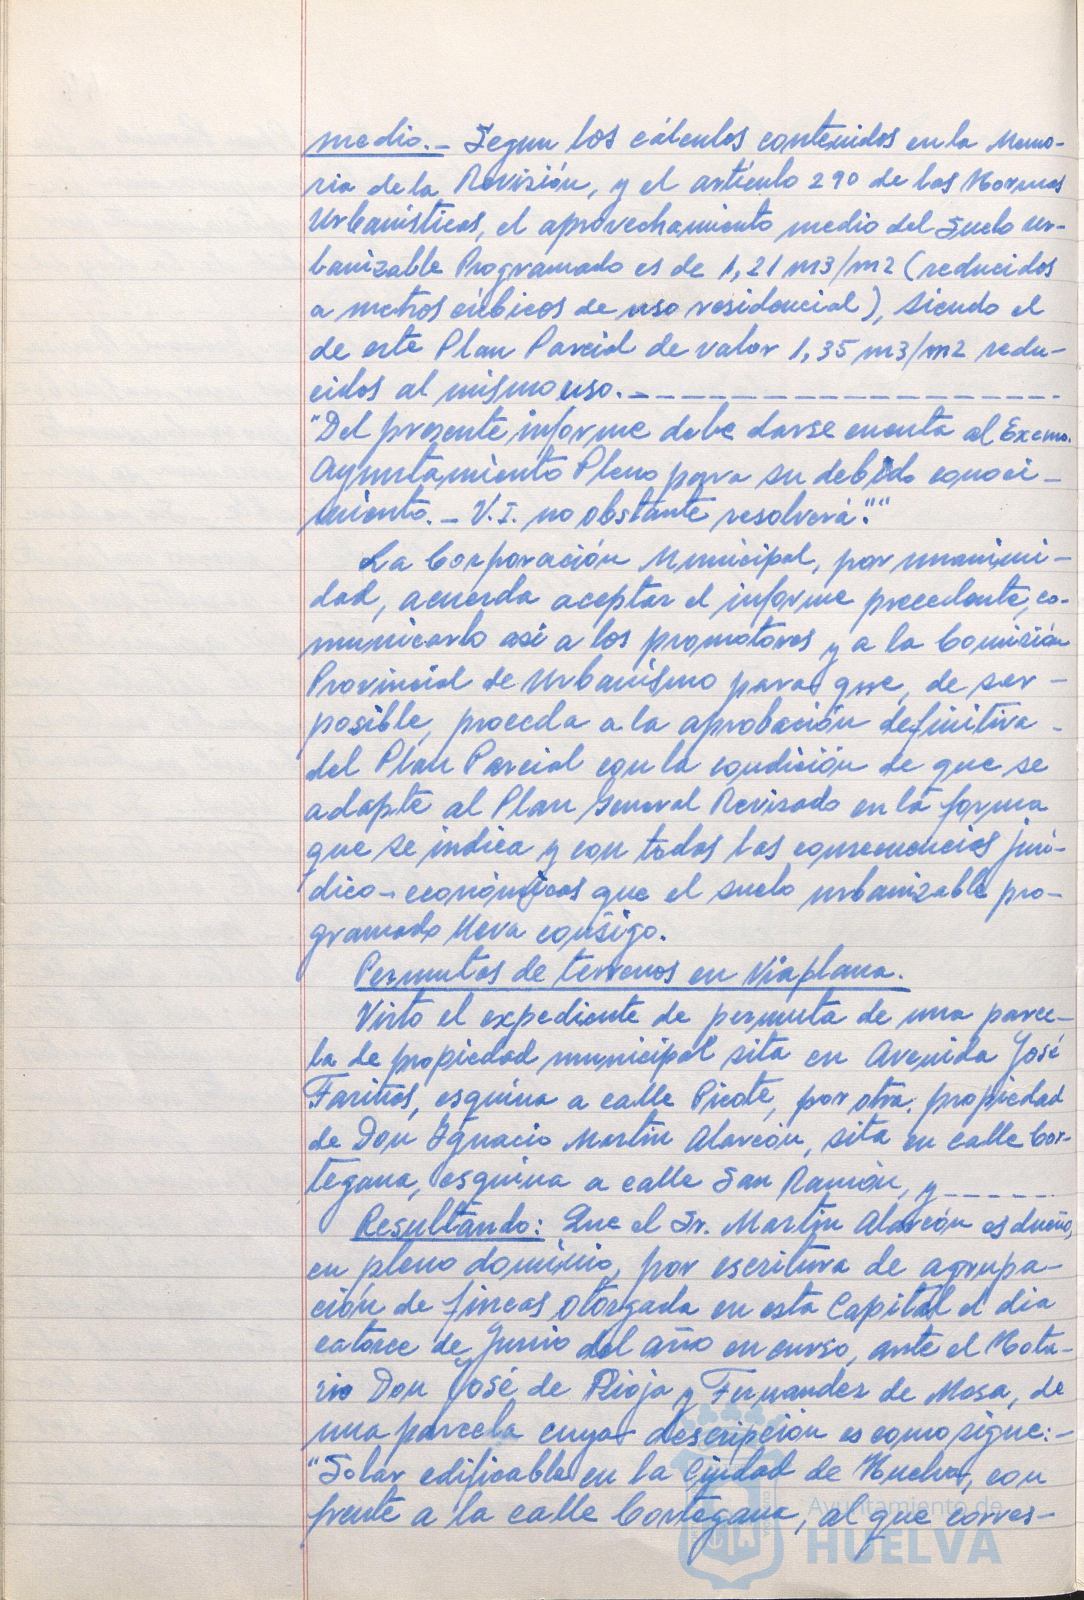 medio.- Segun los cálculos contenidos en la Memo-
ria de la Revisión, y el artículo 290 de las Normas
Urbanísticas, el aprovechamiento medio del Suelo ur-
banizable Programado es de 1,21 m3/m2 (reducidos
a metros cúbicos de uso residencial), siendo el
de este Plan Parcial de valor 1,35 m3/m2 redu-
cidos al mismo uso.-
"Del presente informe debe darse cuenta al Excmo.
Ayuntamiento Pleno para su debido conoci-
miento.- V.I. no obstante resolverá.""
La Corporación Municipal, por unanimi-
dad, acuerda aceptar el informe precedente, co-
municarlo así a los promotores y a la Comisión
Provincial de Urbanismo para que, de ser-
posible, proceda a la aprobación definitiva-
del Plan Parcial con la condición de que se
adapte al Plan General Revisado en la forma
que se indica y con todas las consecuencias jurí-
dico-económicas que el suelo urbanizable pro-
gramado lleva consigo.
Permutas de terrenos en Viaplana.
Visto el expediente de permuta de una parce-
la de propiedad municipal sita en Avenida José
Fariñas, esquina a calle Picote, por otra, propiedad
de Don Ignacio Martín Alarcón, sita en calle Cor-
tegana, esquina a calle San Ramón, y
Resultando: Que el Sr. Martín Alarcón es dueño,
en pleno dominio, por escritura de agrupa-
ción de fincas otorgada en esta Capital el dia
catorce de Junio del año en curso, ante el Nota-
rio Don José de Rioja y Fernandez de Mesa, de
una parcela cuya descripción es como sigue:-
"Solar edificable en la Ciudad de Huelva, con
frente a la calle Cortegana, al que corres-
Ayuntamiento de
HUELVA